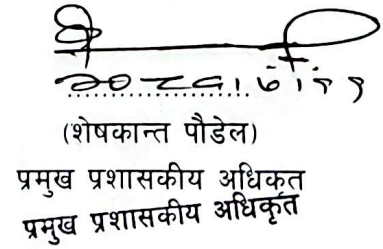 (शेषकान्त पौडेल)
प्रमुख प्रशासकीय अधिकृत
प्रमुख प्रशासकीय अधिकृत